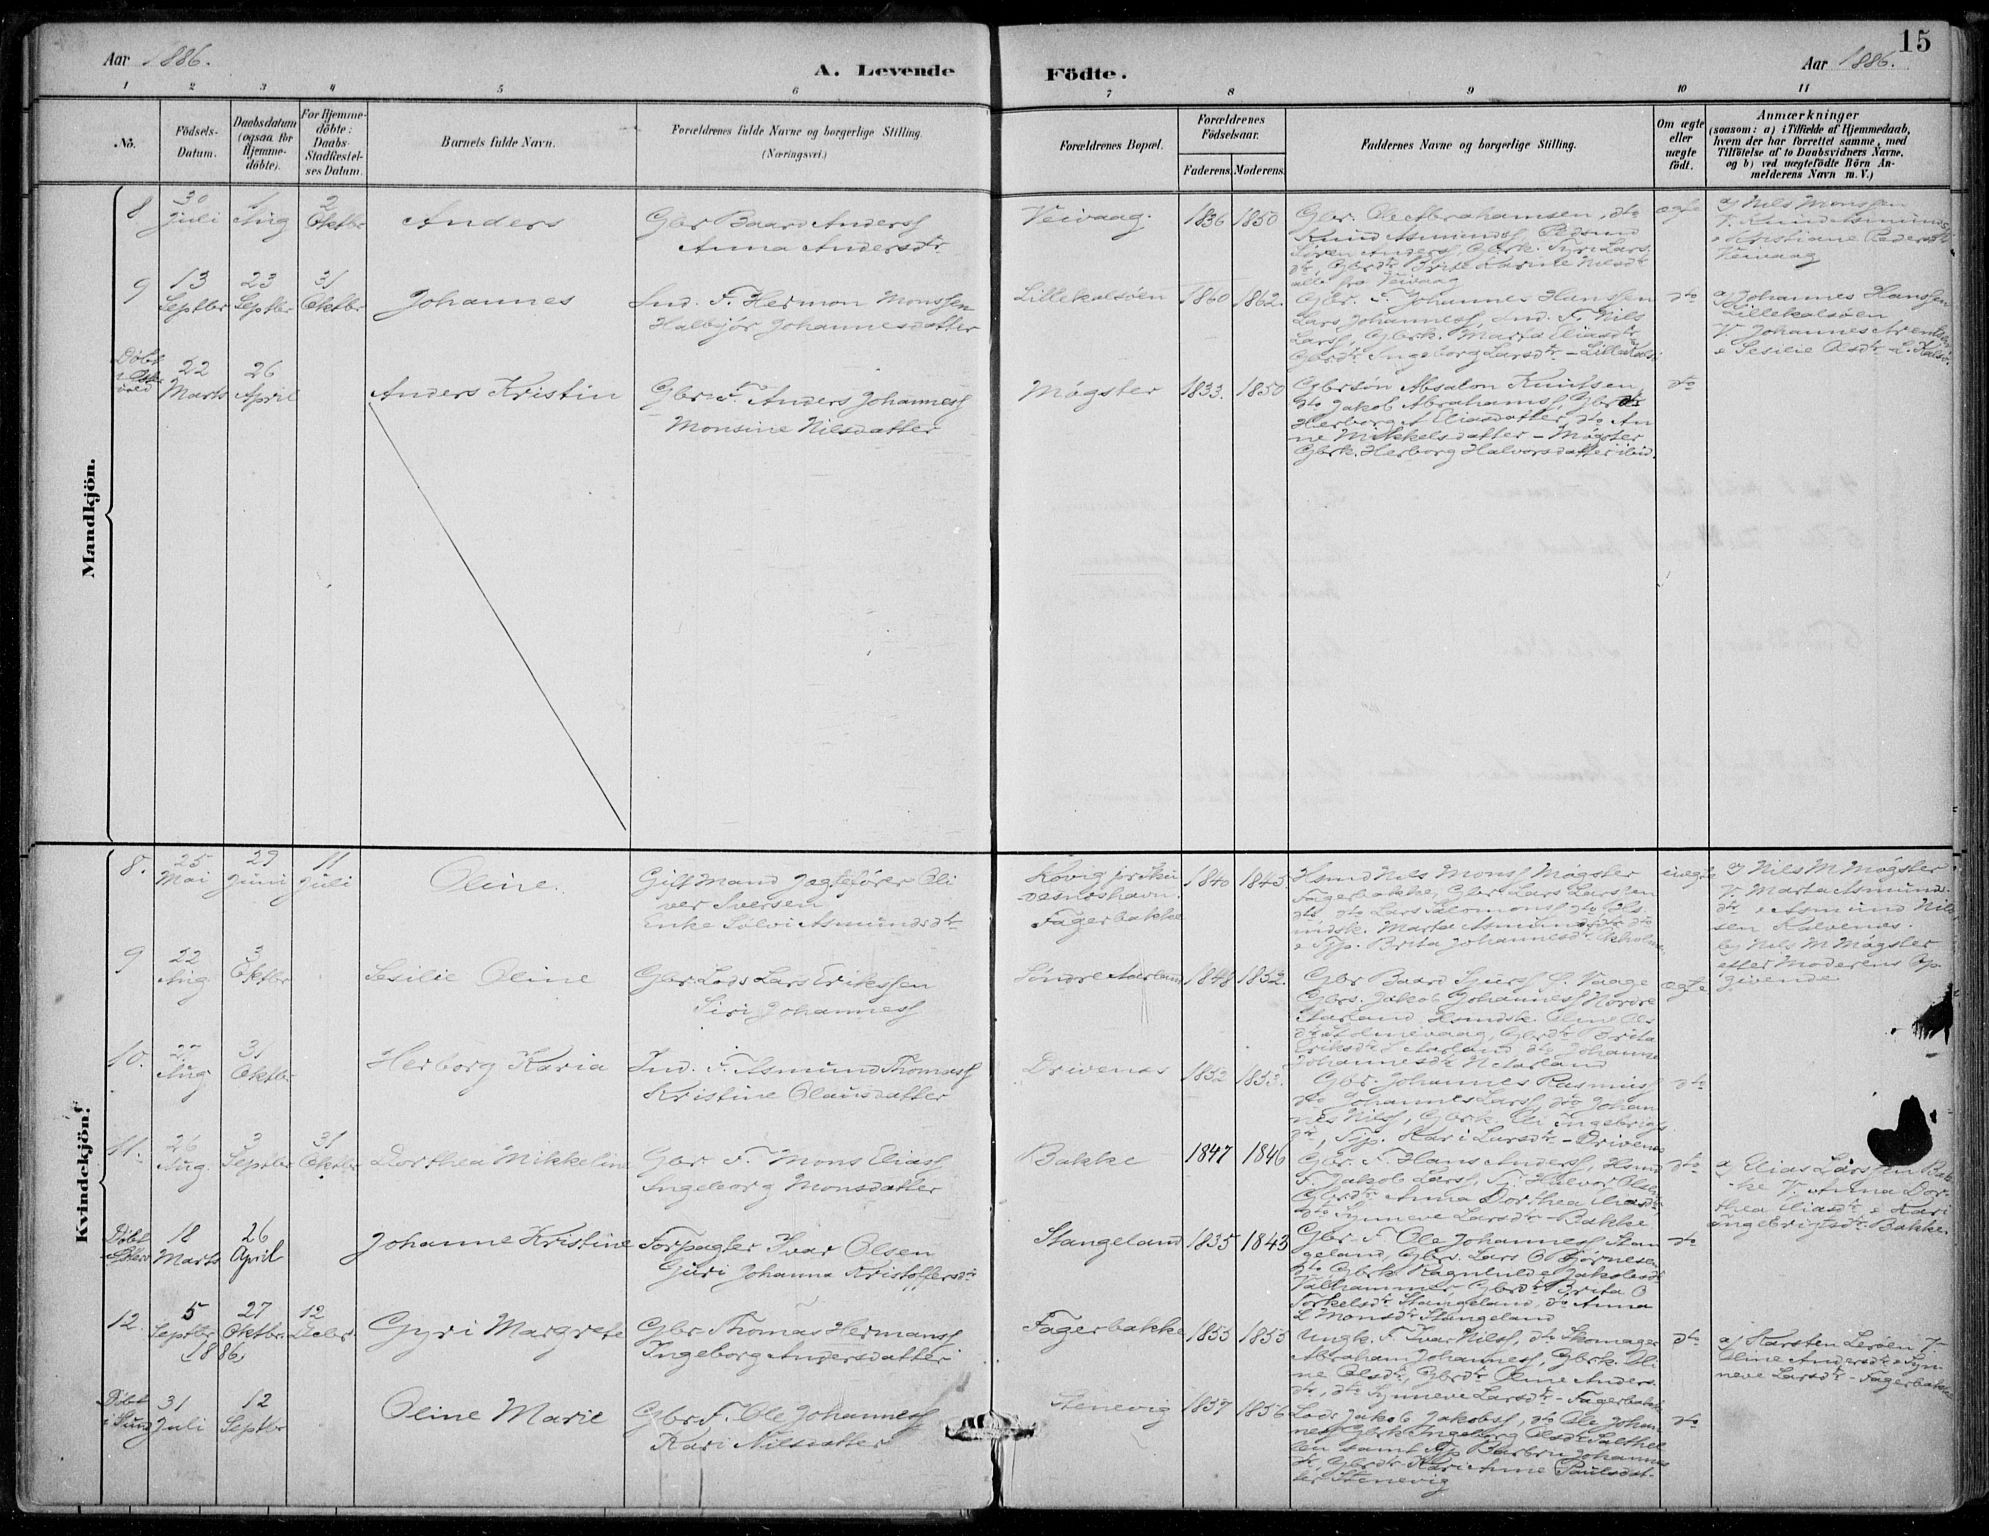 Aar 1886.
A. Levende Födte.
Aar 1886.
15
1 2 3 4 5 6 7 8 9 10 11
No.
Födsels-
Datum.
Daabsdatum
(ogsaa for
Hjemme-
döbte).
For Hjemme-
döbte:
Daabs-
Stadfæstel-
ses Datum.
Barnets fulde Navn.
Forældrenes fulde Navne og borgerlige Stilling.
(Næringsvei.)
Forældrenes Bopæl.
Forældrenes
Födselsaar.
Faderens. Moderens.
Faddernes Navne og borgerlige Stilling.
Om ægte
eller
uægte
födt.
Anmærkninger
(saasom: a) i Tilfælde af Hjemmedaab,
hvem der har forrettet samme, med
Tilföielse af to Daabsvidners Navne,
og b) ved uægtefödte Börn An-
melderens Navn m. V.)
Mandkjön.
8
30
Juli
1
Aug
2
Oktbr
Anders
Gbr Baard Anderss
Anna Andersdtr
Veivaag.
1836 1850
Gbr. Ole Abrahamsen, dto
Knud Asmunds, Pedsmd
Søren Anderss, Gbrk. Lars
dtr, Gbrdtr Brite Karine Nilsdtr
alle fra Veivaag
ægte
a) Nils Monssen
V. Knud Asmunds
& Kristiane Pedersdtr
Veivaag
9
13
Septbr
23
Septbr
31
Oktbr
Johannes
Ind. F. Hermon Monssen
Halbjør Johannesdatter
Lillekalsøen
1860 1862.
Gbr. F. Johannes Hanssen
Lars Johanness, Ind. F. Nils
Larss, Gbrk. Marta Eliasdtr
Gbrdtr Ingeborg Larsdtr - Lillekals
dto
a) Johannes Hanssen
Lillekalsøen
V. Johannes
& Sesilie Olsdtr - L. Kals
Døbt
22
Marts
26
April
Anders Kristin
Gbr F. Anders Johanness
Monsine Nilsdatter
Møgster
1833. 1850
Gbrsøn Absalon Knutsen,
dto Jakob Abrahams, Gbrdtr
Herborg A Eliasdatter, dto An
ne Mikkelsdatter - Møgster
Gbrk. Herborg Halvorsdatter ibid.
dto
Kvindekjön.
8.
25
Mai
29
Juni
11
Juli
Oline.
Gift Mand Jagtefører Oli
ver Iversen
Enke Sølvi Asmundsdtr
desneshavn.
Fagerbakke
1840 1845.
Hsmd Nils Monss Møgster
Fagerbakke, Gbr Lars Larssen
dto, dto Lars Salomons, dto Hs
mdsk. Marta Asmundsdtr dto
& Tjp. Brita Johannesdtr
uægte
a) Nils M Møgster
V. Marta Asmunds
dtr & Asmund Nils
sen Kalvenes.
b) Nils M Møgster
efter Moderens Op
givende
9
22
Aug
3
Oktbr
Sesilie Oline
Gbr. Lods Lars Erikssen
Siri Johanness
Søndre Aarland
1848 1852.
Gbr Baard Sjurss S. Vaage
Gbrs. Jakob Johanness Nordre
Aarland, Hsmdsk. Oline Ols
dtr Holmevaag, Gbrdtr Brita
Eriksdtr S Aarland, dto Johanne
Johannesdtr N Aarland
ægte
10.
27
Aug
31
Oktbr
Herborg Karia
Ind. F. Asmund Thomass
Kristine Olausdatter
Drivenes
1852 1853.
Gbr. Johannes Rasmuss
dto Johannes Larss, dto Johan
nes Nilss, Gbrk. Eli Ingebrigs
dtr, Tjp. Kari Larsdtr - Drivenes
dto
11.
26
Aug
3
Septbr
31
Oktbr
Dorthea Mikkeline
Gbr F. Mons Eliass
Ingeborg Monsdatter
Bakke
1847 1846
Gbr. F. Hans Anderss, Hsmd
F. Jakob Larss, Tj. Halvor Olsen
Gbrdtr Anna Dorthea Eliasdtr
dto Synneve Larsdtr - Bakke
dto
a) Elias Larssen Bak
ke V. Anna Dor
thea Eliasdtr & Kari
Ingebrigtsdtr Bakke.
Døbt
18
Marts
26
April
Johanne Kristine
Forpagter Ivar Olsen
Guri Johanna Kristoffersdtr
Stangeland
1835 1843
Gbr. F. Ole Johanness Stan
geland, Gbrs. Lars O Bjørnesen
dto Gbrk Ragnhild Jakobsdtr
Valhammer, Gbrdtr Brita O
Torkelsdtr Stangeland, dto Anna
L Monsdtr Stangeland
dto
12.
5
Septbr
27
Oktbr.
1886,
12
Decbr.
Gyri Margrete
Gbr Thomas Hermanss
Ingeborg Andersdatter
Fagerbakke
1855 1855
Ungk. F. Ivar Nilss, dto Skomager
Abraham Johanness, Gbrk. Oli
ne Olsdtr, Gbrdtr Oline Anders
dtr, dto Synneve Larsdtr - Fagerbakke
dto
a) Karsten Lerøen V.
Oline Andersdtr & Syn
neve Larsdtr - Fagerbakke
Døbt
i Sund
31
Juli
12
Septbr
Oline Marie
Gbr F. Ole Johanness
Kari Nilsdatter
Stenevig
1857 1856
Lods Jakob Jakobss, dto Ole Johan
ness Gbrk Ingeborg Olsdtr Salthel
len samt Tjp Barbru Johannes
dtr, Gbrdtr Kari Anne Paulsdat-
ter Stenevig
dto